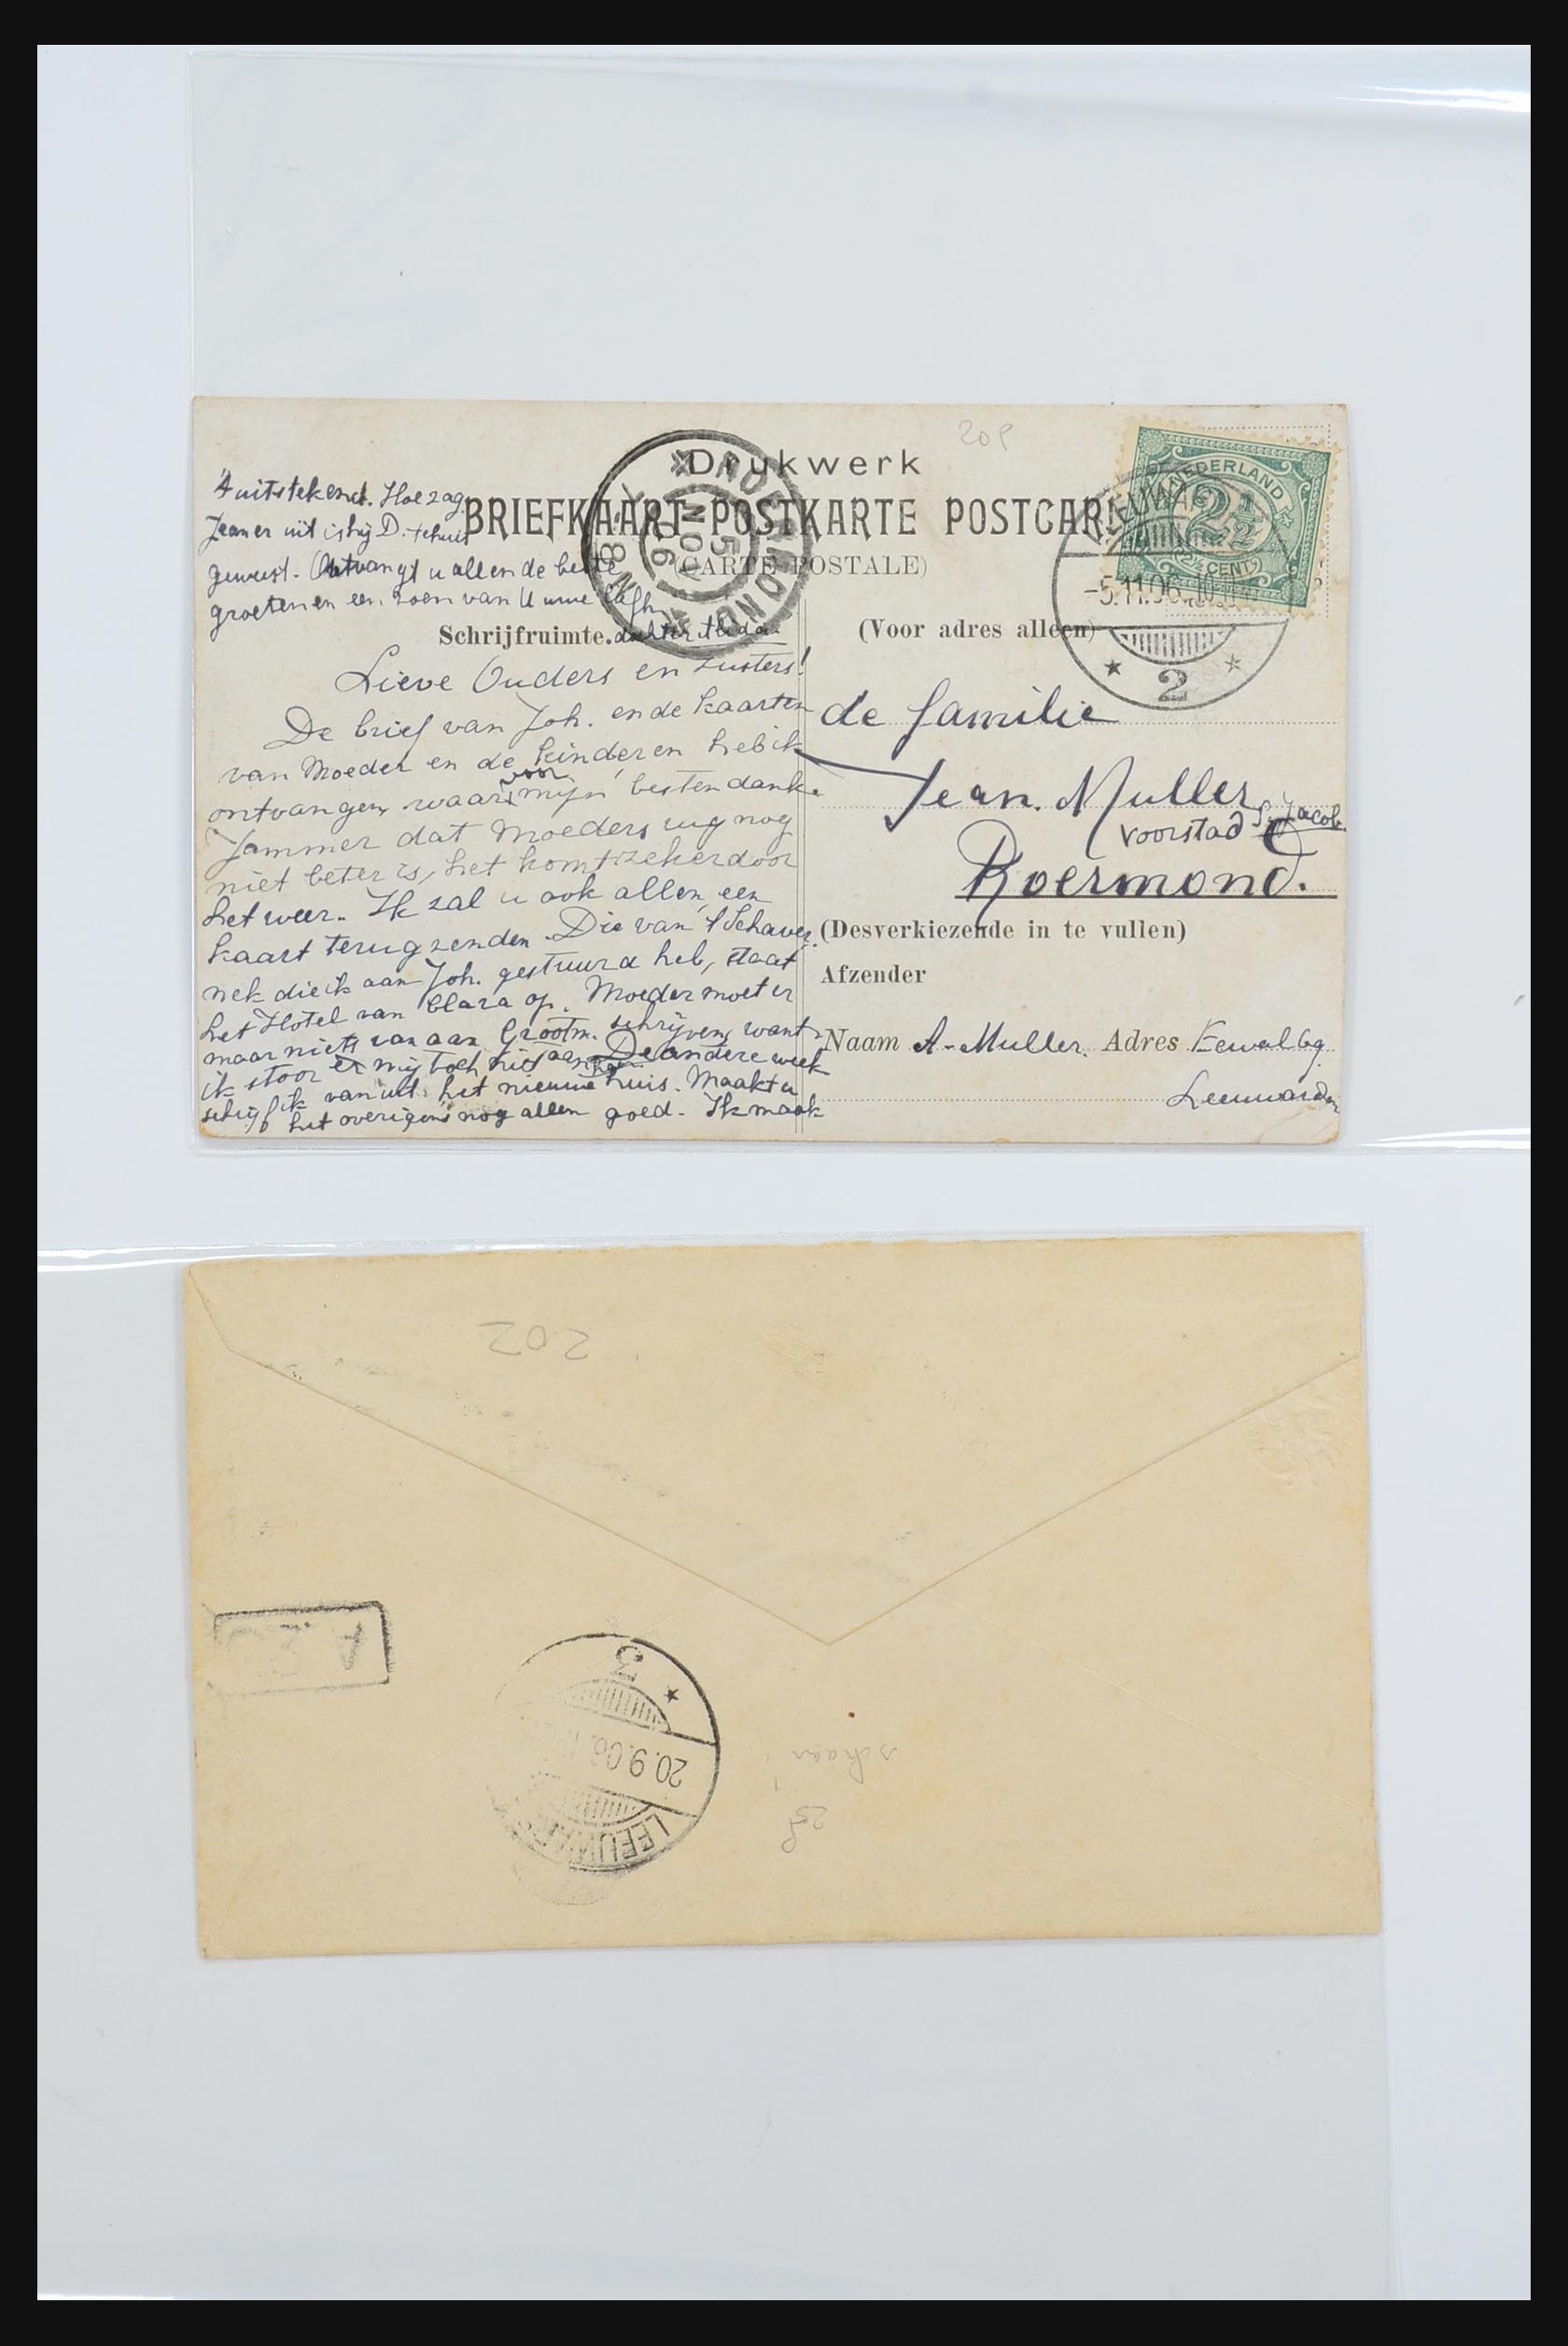 20f
Drukwerk
BRIEFKAART POSTKARTE POSTCARD
(CARTE POSTALE)
NEDERLAND
2½
2½ CENT
LEEUWAR
-5.11.06. 10-11
2
ROERMOND
5
NOV
06
8-
't uitstekend. Hoe zag
Jean er uit is hij D. tehuis
geweest. Ontvangt u allen de beste
groeten en een zoen van U uwe liefh.
Schrijfruimte. dochter
(Voor adres alleen)
Lieve Ouders en Zusters!
De brief van Joh. en de kaarten
van Moeder en de kinderen heb ik
ontvangen waarvoor mijn besten dank.
Jammer dat Moeders rug nog
niet beter is, het komt zeker door
het weer. Ik zal u ook allen een
kaart terug zenden. Die van 't Schaver
nek die ik aan Joh. gestuurd heb, staat
het Hotel van Clara op. Moeder moet er
maar niets van aan Grootm. schrijven, want
ik stoor er mij toch niet aan. De andere week
schrijf ik van uit het nieuwe huis. Maakt u
het overigens nog allen goed. Ik maak
de familie
Jean. Muller
voorstad St. Jacob.
Roermond.
(Desverkiezende in te vullen)
Afzender
Naam A. Muller. Adres Eewal 69.
Leeuwarden
202
A
3
20.9.06.
LEEUWAR
schaar
25f